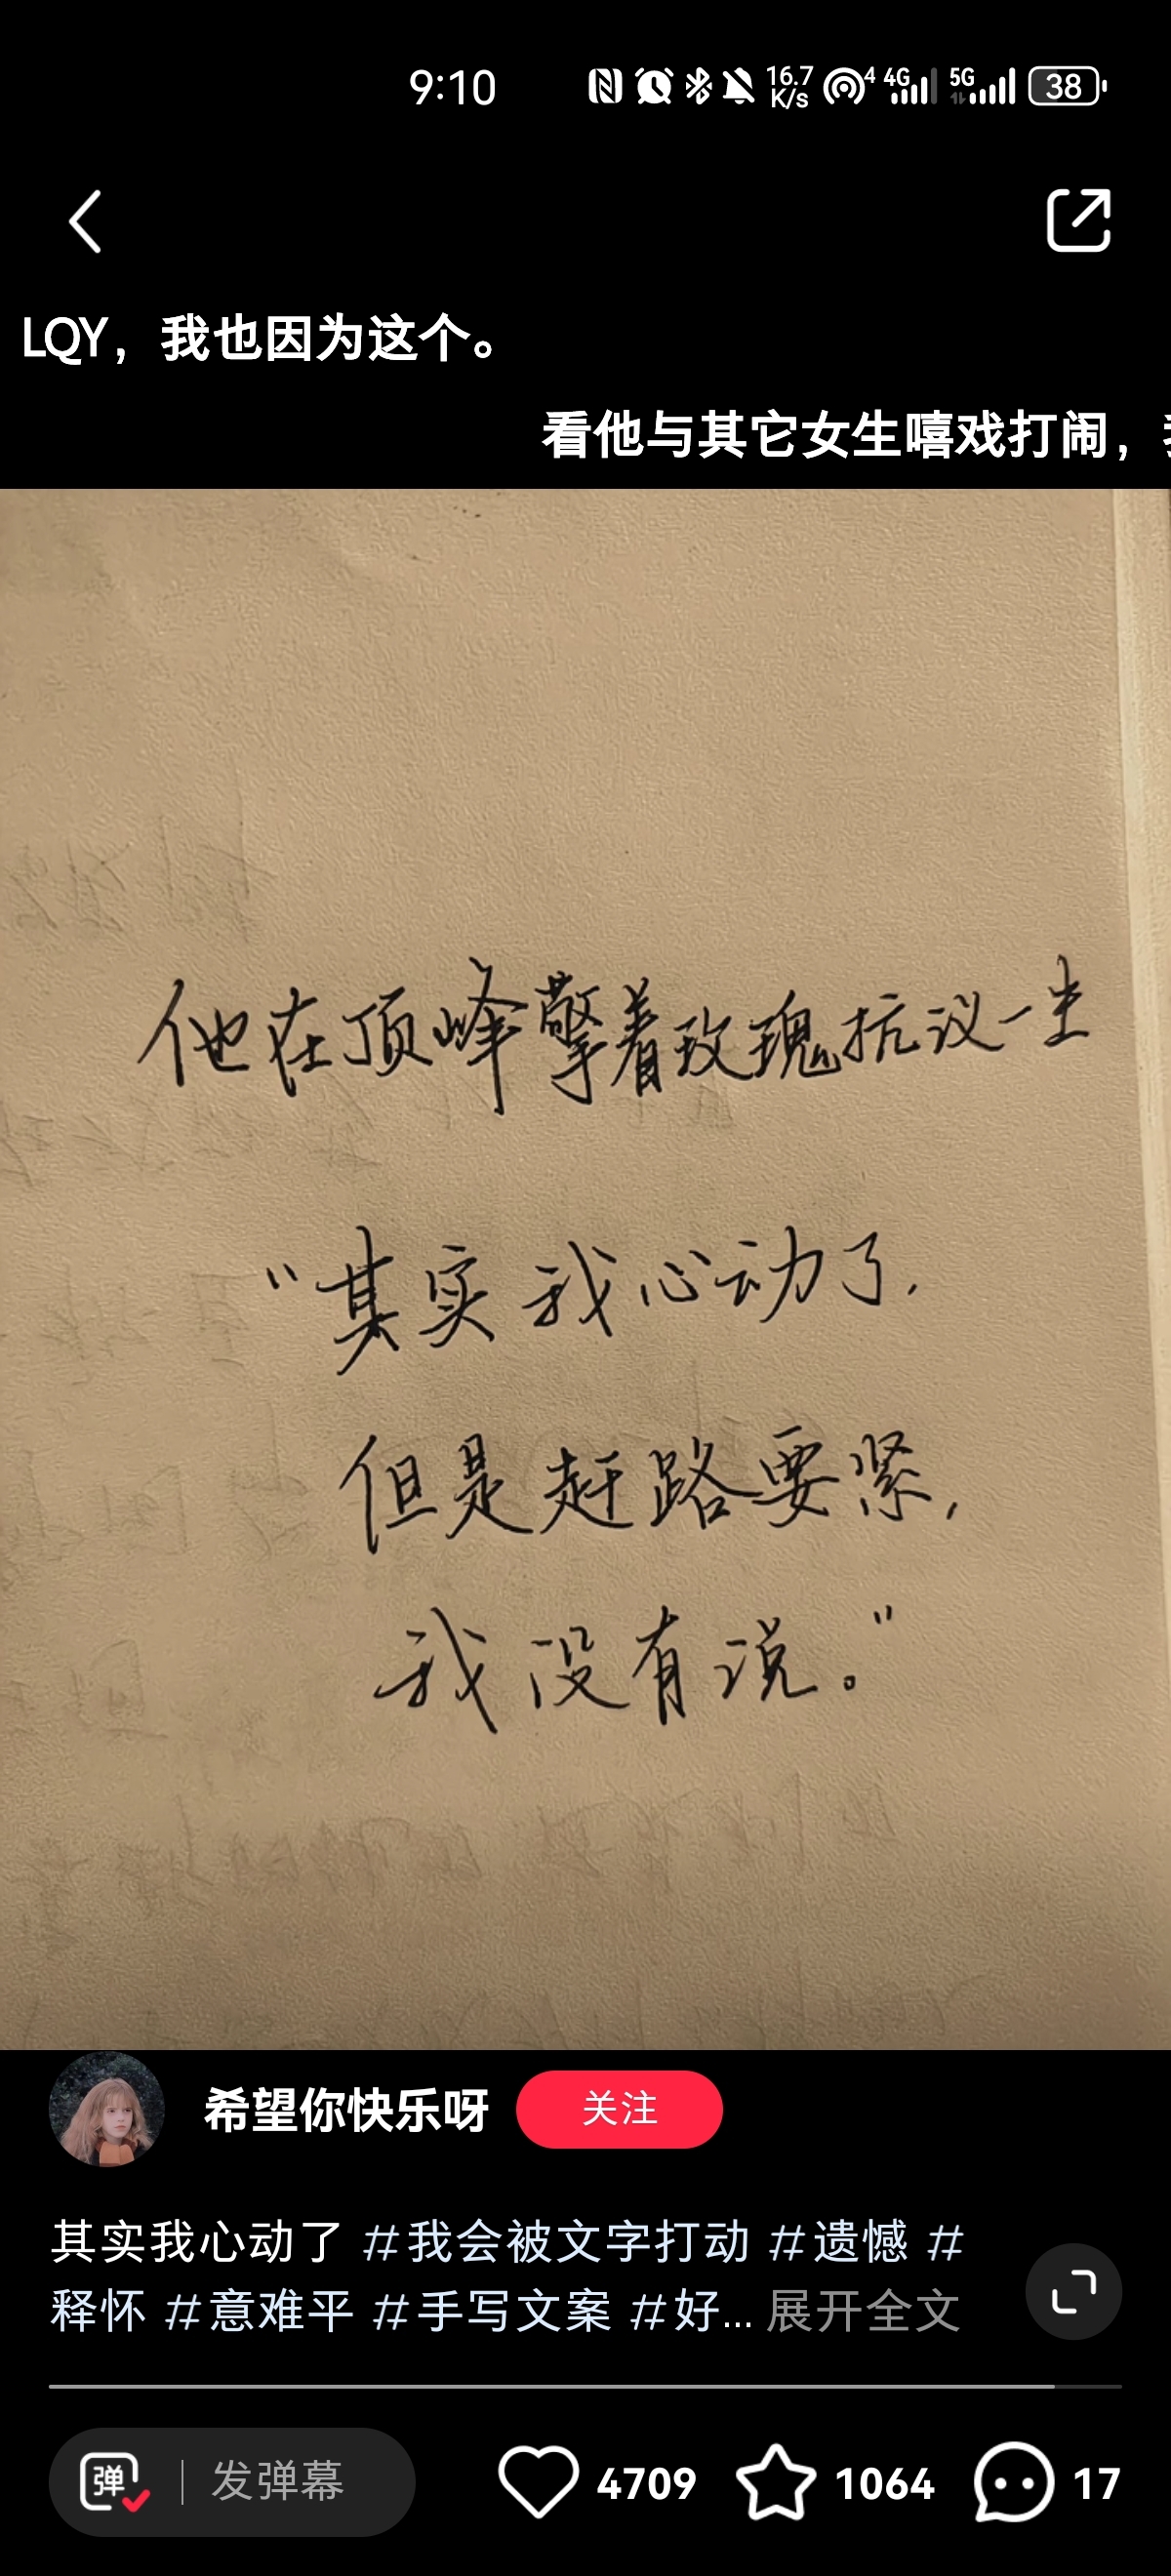 9:10
16.7 K/s 4 4G 5G 38
LQY，我也因为这个。
看他与其它女生嘻戏打闹，
他在顶峰擎着玫瑰抗议一生
“其实我心动了,
但是赶路要紧,
我没有说。”
希望你快乐呀 关注
其实我心动了 #我会被文字打动 #遗憾 #
释怀 #意难平 #手写文案 #好... 展开全文
弹 发弹幕 4709 1064 17